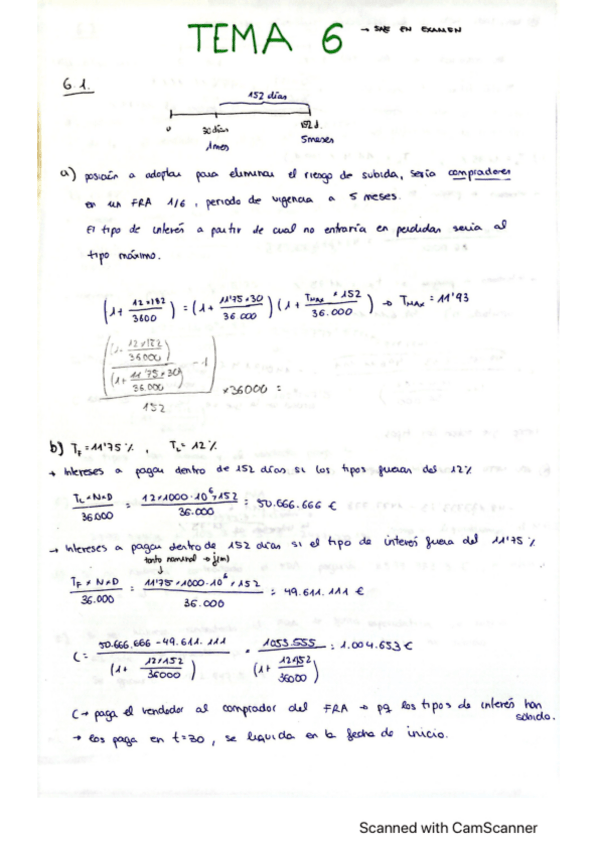 TEMA 6 → SAE EN EXAMEN
6.1.
152 días
0 30 días 152 d.
1mes 5meses
a) posición a adoptar para eliminar el riesgo de subida, sería compradores
en un FRA 1/6, periodo de vigencia a 5 meses.
El tipo de interés a partir de cual no entraría en perdidas seria al
tipo máximo.
(1 + 12×182 / 3600) = (1 + 11'75×30 / 36 000) (1 + TMAX × 152 / 36.000) → TMAX = 11'93
((1 + 12×182 / 36000) / (1 + 11'75×30 / 36.000) - 1) / 152 × 36000 =
b) TF = 11'75 %, TL = 12 %
→ Intereses a pagar dentro de 152 días si los tipos fueran del 12%
TL × N × D / 36.000 = 12×1000·10⁶×152 / 36.000 = 50.666.666 €
→ Intereses a pagar dentro de 152 días si el tipo de interés fuera del 11'75 %
tanto nominal → j(m)
TF × N × D / 36.000 = 11'75×1000·10⁶×152 / 36.000 = 49.611.111 €
C = 50.666.666 - 49.611.111 / (1 + 12×152 / 36000) = 1055.555 / (1 + 12×152 / 36000) = 1.004.653 €
C → paga el vendedor al comprador del FRA → pq los tipos de interés han
subido.
→ los paga en t=30, se liquida en la fecha de inicio.
Scanned with CamScanner